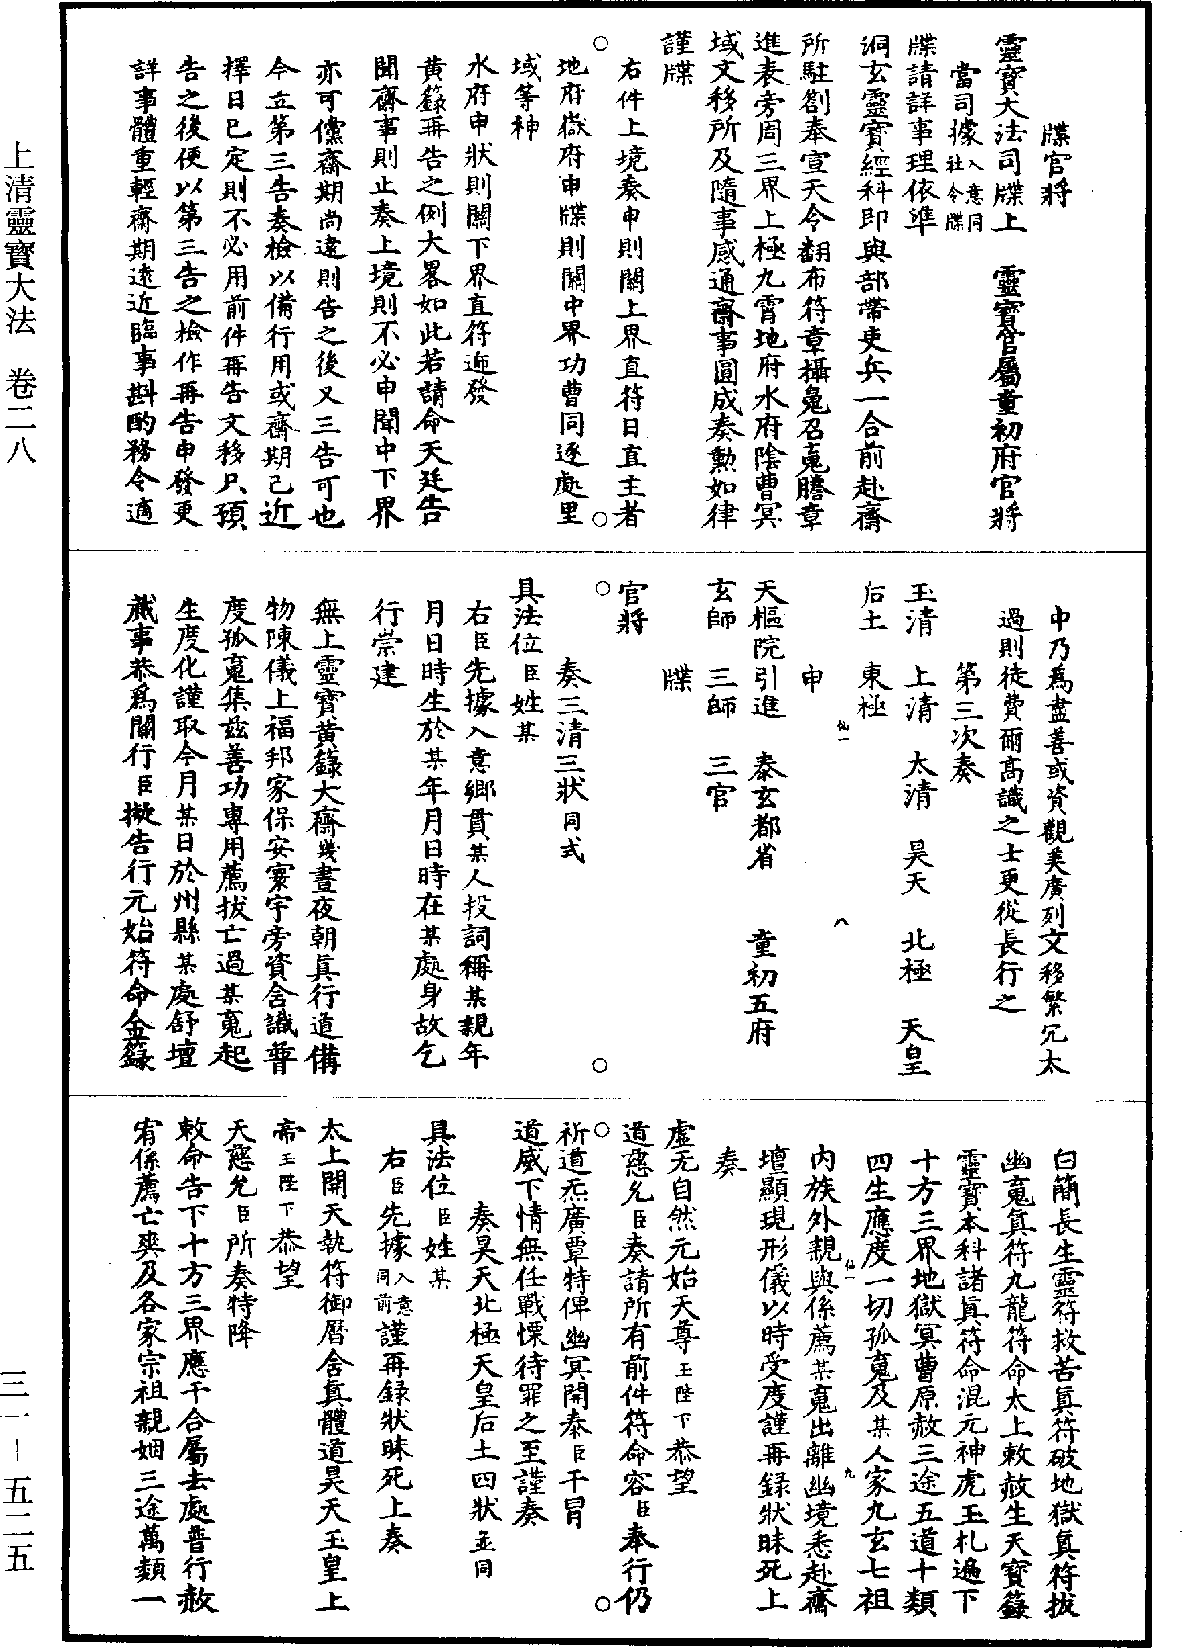 牒官將
靈寶大法司牒上　靈寶官屬童初府官將
當司據入意同社令牒
牒請詳事理依準
洞玄靈寶經科即與部帶吏兵一合前赴齋
所駐劄奉宣天令翻布符章攝䰟召䰟謄章
進表旁周三界上極九霄地府水府陰曹冥
域文移所及隨事感通齋事圓成奏勳如律
謹牒
右件上境奏申則關上界直符日直主者
地府嶽府申牒則關中界功曹同逐處里
域等神
水府申狀則關下界直符遞發
黃籙再告之例大畧如此若請命天廷告
聞齋事則止奏上境則不必申聞中下界
亦可儻齋期尚遠則告之後又三告可也
今立第三告奏檢以備行用或齋期已近
擇日已定則不必用前件再告文移只預
告之後便以第三告之檢作再告申發更
詳事體重輕齋期遠近臨事斟酌務令適
中乃爲盡善或資觀美廣列文移繁冗太
過則徒費爾高識之士更從長行之
第三次奏
玉清　上清　太清　昊天　北極　天皇
后土　東極
申
天樞院引進　泰玄都省　童初五府
玄師　三師　三官
牒
官將
奏三清三狀同式
具法位臣姓某
右臣先據入意鄉貫某人投詞稱某親年
月日時生於某年月日時在某處身故乞
行崇建
無上靈寶黃籙大齋幾晝夜朝眞行道備
物陳儀上福邦家保安寰宇旁資含識普
度孤䰟集茲善功專用薦拔亡過某䰟起
生度化謹取今月某日於州縣某處舒壇
蕆事恭爲關行臣擬告行元始符命金籙
白簡長生靈符救苦眞符破地獄眞符拔
幽䰟眞符九龍符命太上敕赦生天寶籙
靈寶本科諸眞符命混元神虎玉札遍下
十方三界地獄冥曹原赦三途五道十類
四生應度一切孤䰟及某人家九玄七祖
內族外親與係薦某䰟出離幽境悉赴齋
壇顯現形儀以時受度謹再錄狀昧死上
奏
虛无自然元始天尊玉陛下恭望
道慈允臣奏請所有前件符命容臣奉行仍
祈道炁廣覃特俾幽冥開泰臣干冒
道威下情無任戰慄待罪之至謹奏
奏昊天北極天皇后土四狀並同
具法位臣姓某
右臣先據入意同前謹再錄狀昧死上奏
太上開天執符御曆含眞體道昊天玉皇上
帝玉陛下恭望
天慈允臣所奏特降
敕命告下十方三界應干合屬去處普行赦
宥係薦亡奭及各家宗祖親姻三途萬類一
上清靈寶大法　卷二八
三一－五二五